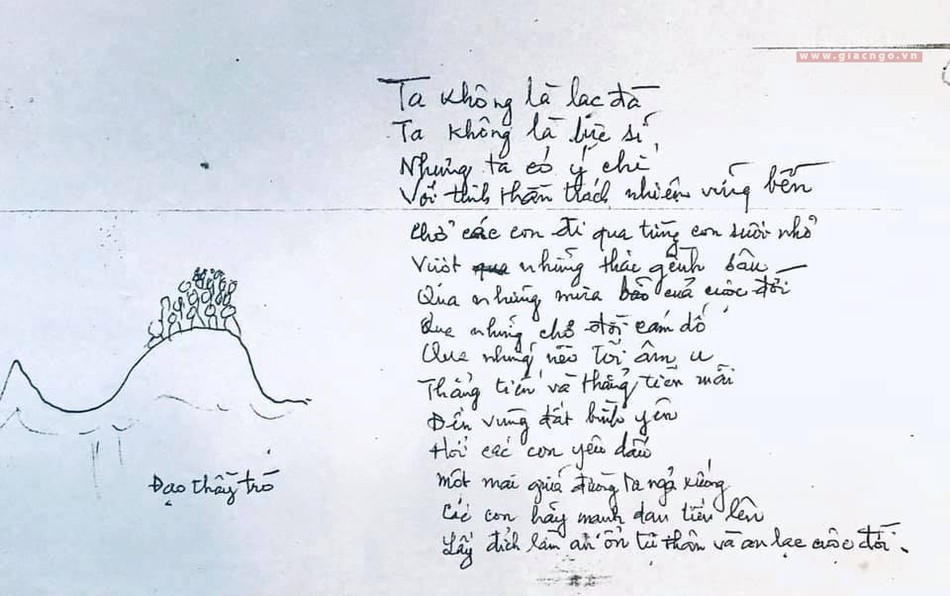 www.giacngo.vn
Ta không là lạc đà
Ta không là lực sĩ
Nhưng ta có ý chí
Với tinh thần trách nhiệm vững bền
Chở các con đi qua từng con suối nhỏ
Vượt qua những thác gềnh sâu
Qua những mưa bão của cuộc đời
Qua những chợ đời cám dỗ
Qua những nẻo tối âm u
Thẳng tiến và thẳng tiến mãi
Đến vùng đất bình yên
Hỡi các con yêu dấu
Một mai quá đường ta ngã xuống
Các con hãy mạnh dạn tiến lên
Lấy đích làm an ổn tự thân và an lạc cuộc đời.
Đạo thầy trò